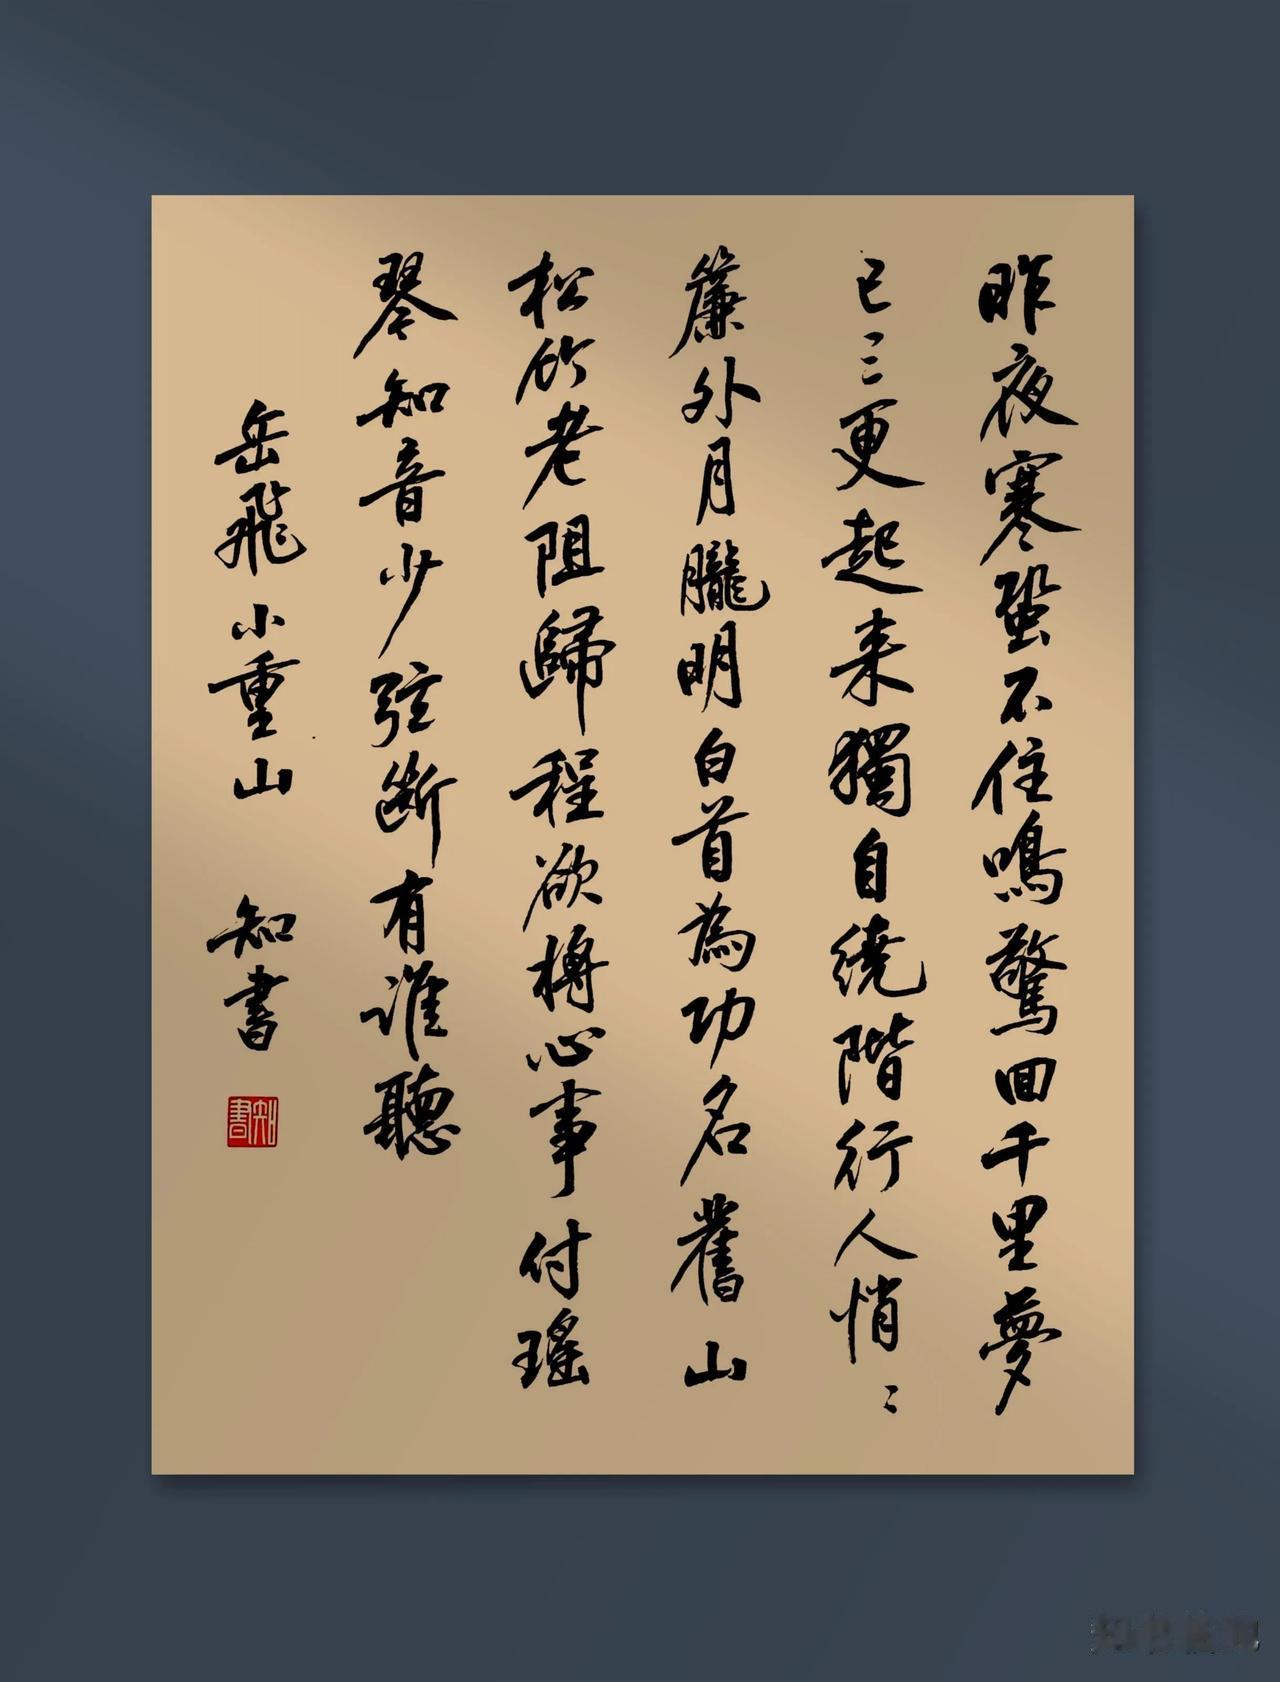 昨夜寒蛩不住鳴驚回千里夢
已三更起来獨自繞階行人悄〻
簾外月朧明白首為功名舊山
松竹老阻歸程欲槫心事付瑤
琴知音少弦斷有誰聽
岳飛小重山 知書
知書